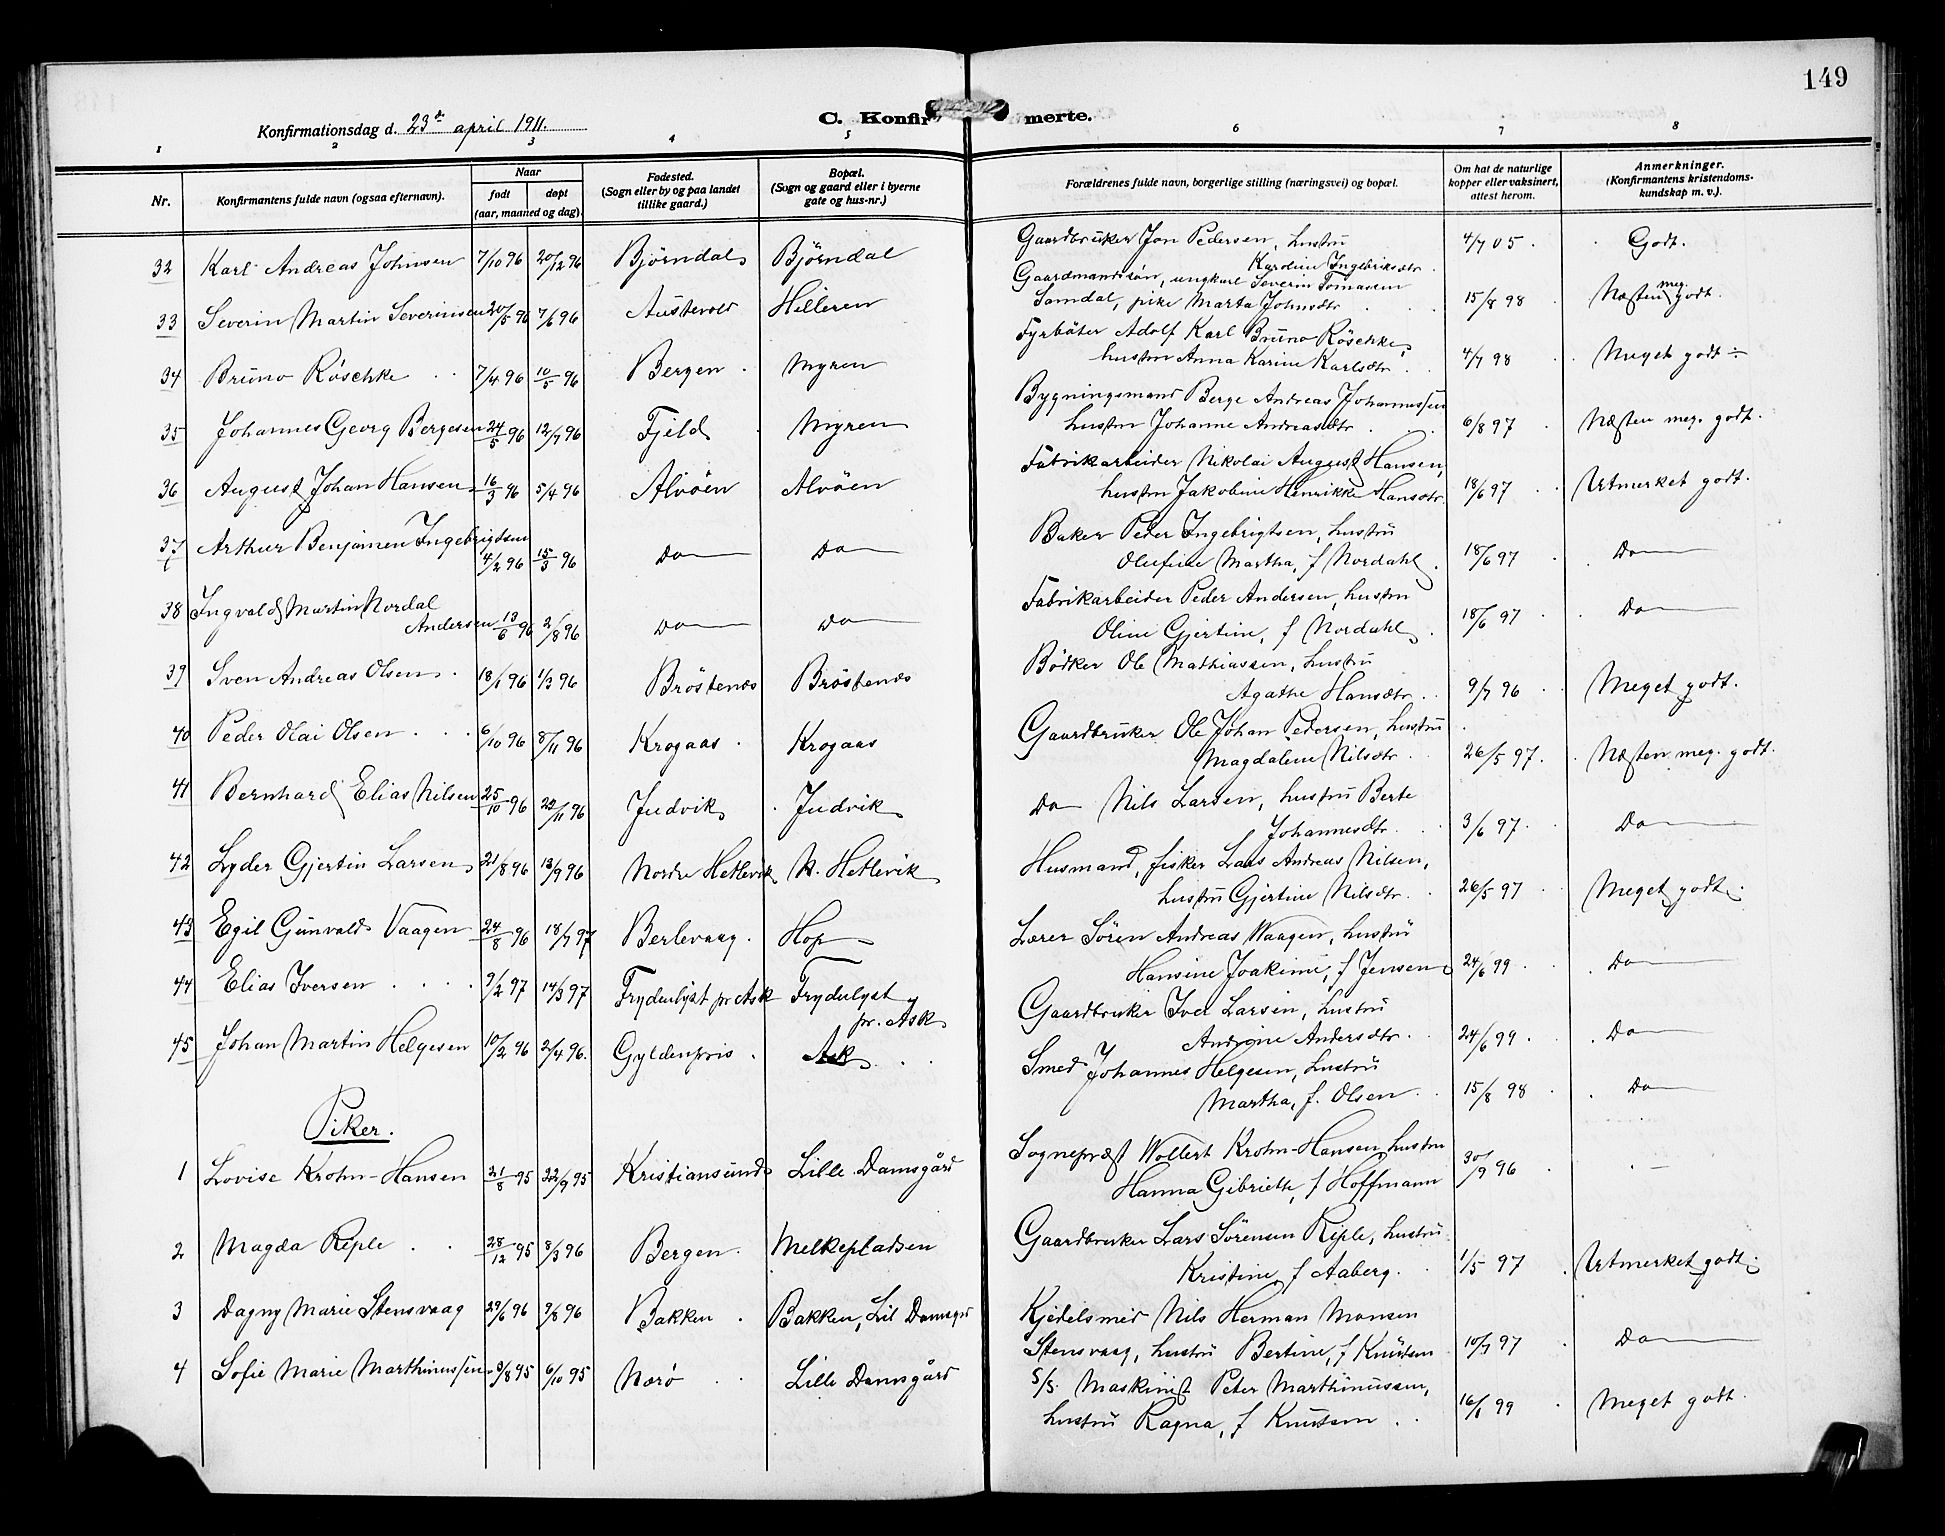 149
Konfirmationsdag d. 23de april 1911.
C. Konfirmerte.
1 2 3 4 5 6 7 8
Nr. Konfirmantens fulde navn (ogsaa efternavn). Naar født døpt (aar, maaned og dag). Fødested. (Sogn eller by og paa landet tillike gaard.) Bopæl. (Sogn og gaard eller i byerne gate og hus-nr.) Forældrenes fulde navn, borgerlige stilling (næringsvei) og bopæl. Om hat de naturlige kopper eller vaksinert, attest herom. Anmerkninger. (Konfirmantens kristendomskundskap m. v.).
32 Karl Andreas Johnsen 7/10 96 20/12 96 Björndal Björndal Gaardbruker Jon Pedersen, hustru 4/7 05. Godt.
Karoline Ingebriksdtr.
33 Severin Martin Severinsen 20/5 96 7/6 96 Austevold Hilleren Gaardmandssøn, ungkarl Severin Tomassen
Samdal, pike Marta Johnsdtr 15/8 98 Næsten meg. godt.
34 Bruno Röschke 7/4 96 10/5 96 Bergen Myren Fyrböter Adolf Karl Bruno Röschke,
hustru Anna Karine Karlsdtr. 4/7 98 Meget godt ÷
35 Johannes Georg Bergesen 24/5 96 12/7 96 Fjeld Myren Bygningsmand Berge Andreas Johannessen
hustru Johanne Andreasdtr 6/8 97 Næsten meg. godt.
36 August Johan Hansen 16/3 96 5/4 96 Alvöen Alvöen Fabrikarbeider Nikolai August Hansen,
hustru Jakobine Henrikke Hansdtr. 18/6 97 Utmerket godt.
37 Arthur Benjamen Ingebrigtsen 4/2 96 15/3 96 Do Do Baker Peder Ingebrigtsen, hustru
Olufine Martha, f Nordahl. 18/6 97 Do
38 Ingvald Martin Nordal
Andersen 13/6 96 2/8 96 Do Do Fabrikarbeider Peder Andersen, hustru
Oline Gjertine, f Nordahl. 18/6 97 Do
39 Sven Andreas Olsen 18/1 96 1/3 96 Bröstenes Bröstenes Bödker Ole Mathiassen, hustru
Agathe Hansdtr. 9/7 96 Meget godt.
40 Peder Olai Olsen 6/10 96 8/11 96 Krogaas Krogaas Gaardbruker Ole Johan Pedersen, hustru
Magdalene Nilsdtr 26/5 97. Næsten meg. godt.
41 Bernhard Elias Nilsen 25/10 96 22/11 96 Judvik Judvik Do Nils Larsen, hustru Berte
Johannesdtr. 3/6 97. Do
42 Lyder Gjertin Larsen 21/8 96 13/9 96 Nordre Hetlevik N. Hetlevik Husmand, fisker Lars Andreas Nilsen,
hustru Gjertine Nilsdtr. 26/5 97 Meget godt.
43 Egil Gunvald Vaagen 24/8 96 18/7 97 Berlevaag. Hop Lærer Sören Andreas Waagen, hustru
Hansine Joakime, f Jensen 24/6 99. Do
44 Elias Iversen 9/2 97 14/3 97 Frydenlyst pr Ask Frydenlyst
pr. Ask Gaardbruker Iver Larsen, hustru
Andrine Andersdtr. 24/6 99. Do
45 Johan Martin Helgesen 10/2 96 2/4 96. Gyldenpris. Ask Smed Johannes Helgesen, hustru
Martha, f. Olsen 15/8 98 Do
Piker.
1 Lovise Krohn-Hansen 21/8 95 22/9 95 Kristiansund Lille Damsgård Sogneprest Wollert Krohn-Hansen, hustru
Hanna Gibriette, f Hoffmann 30/9 96 —
2 Magda Riple 28/12 95 8/3 96 Bergen. Melkepladsen Gaardbruker Lars Sörensen Riple, hustru
Kristine, f Aaberg. 1/5 97 Utmerket godt.
3 Dagny Marie Stensvaag 29/6 96 9/8 96 Bakken. Bakken, Lil Damsgd Kjedelsmed Nils Herman Monsen
Stensvaag, hustru Bertine, f Knutsen 10/7 97 Do
4 Sofie Marie Marthinussen 9/8 95 6/10 95 Nærö Lille Damsgård S/S. Maskinist Peter Marthinussen,
hustru Ragna, f Knutsen 16/1 99 Meget godt